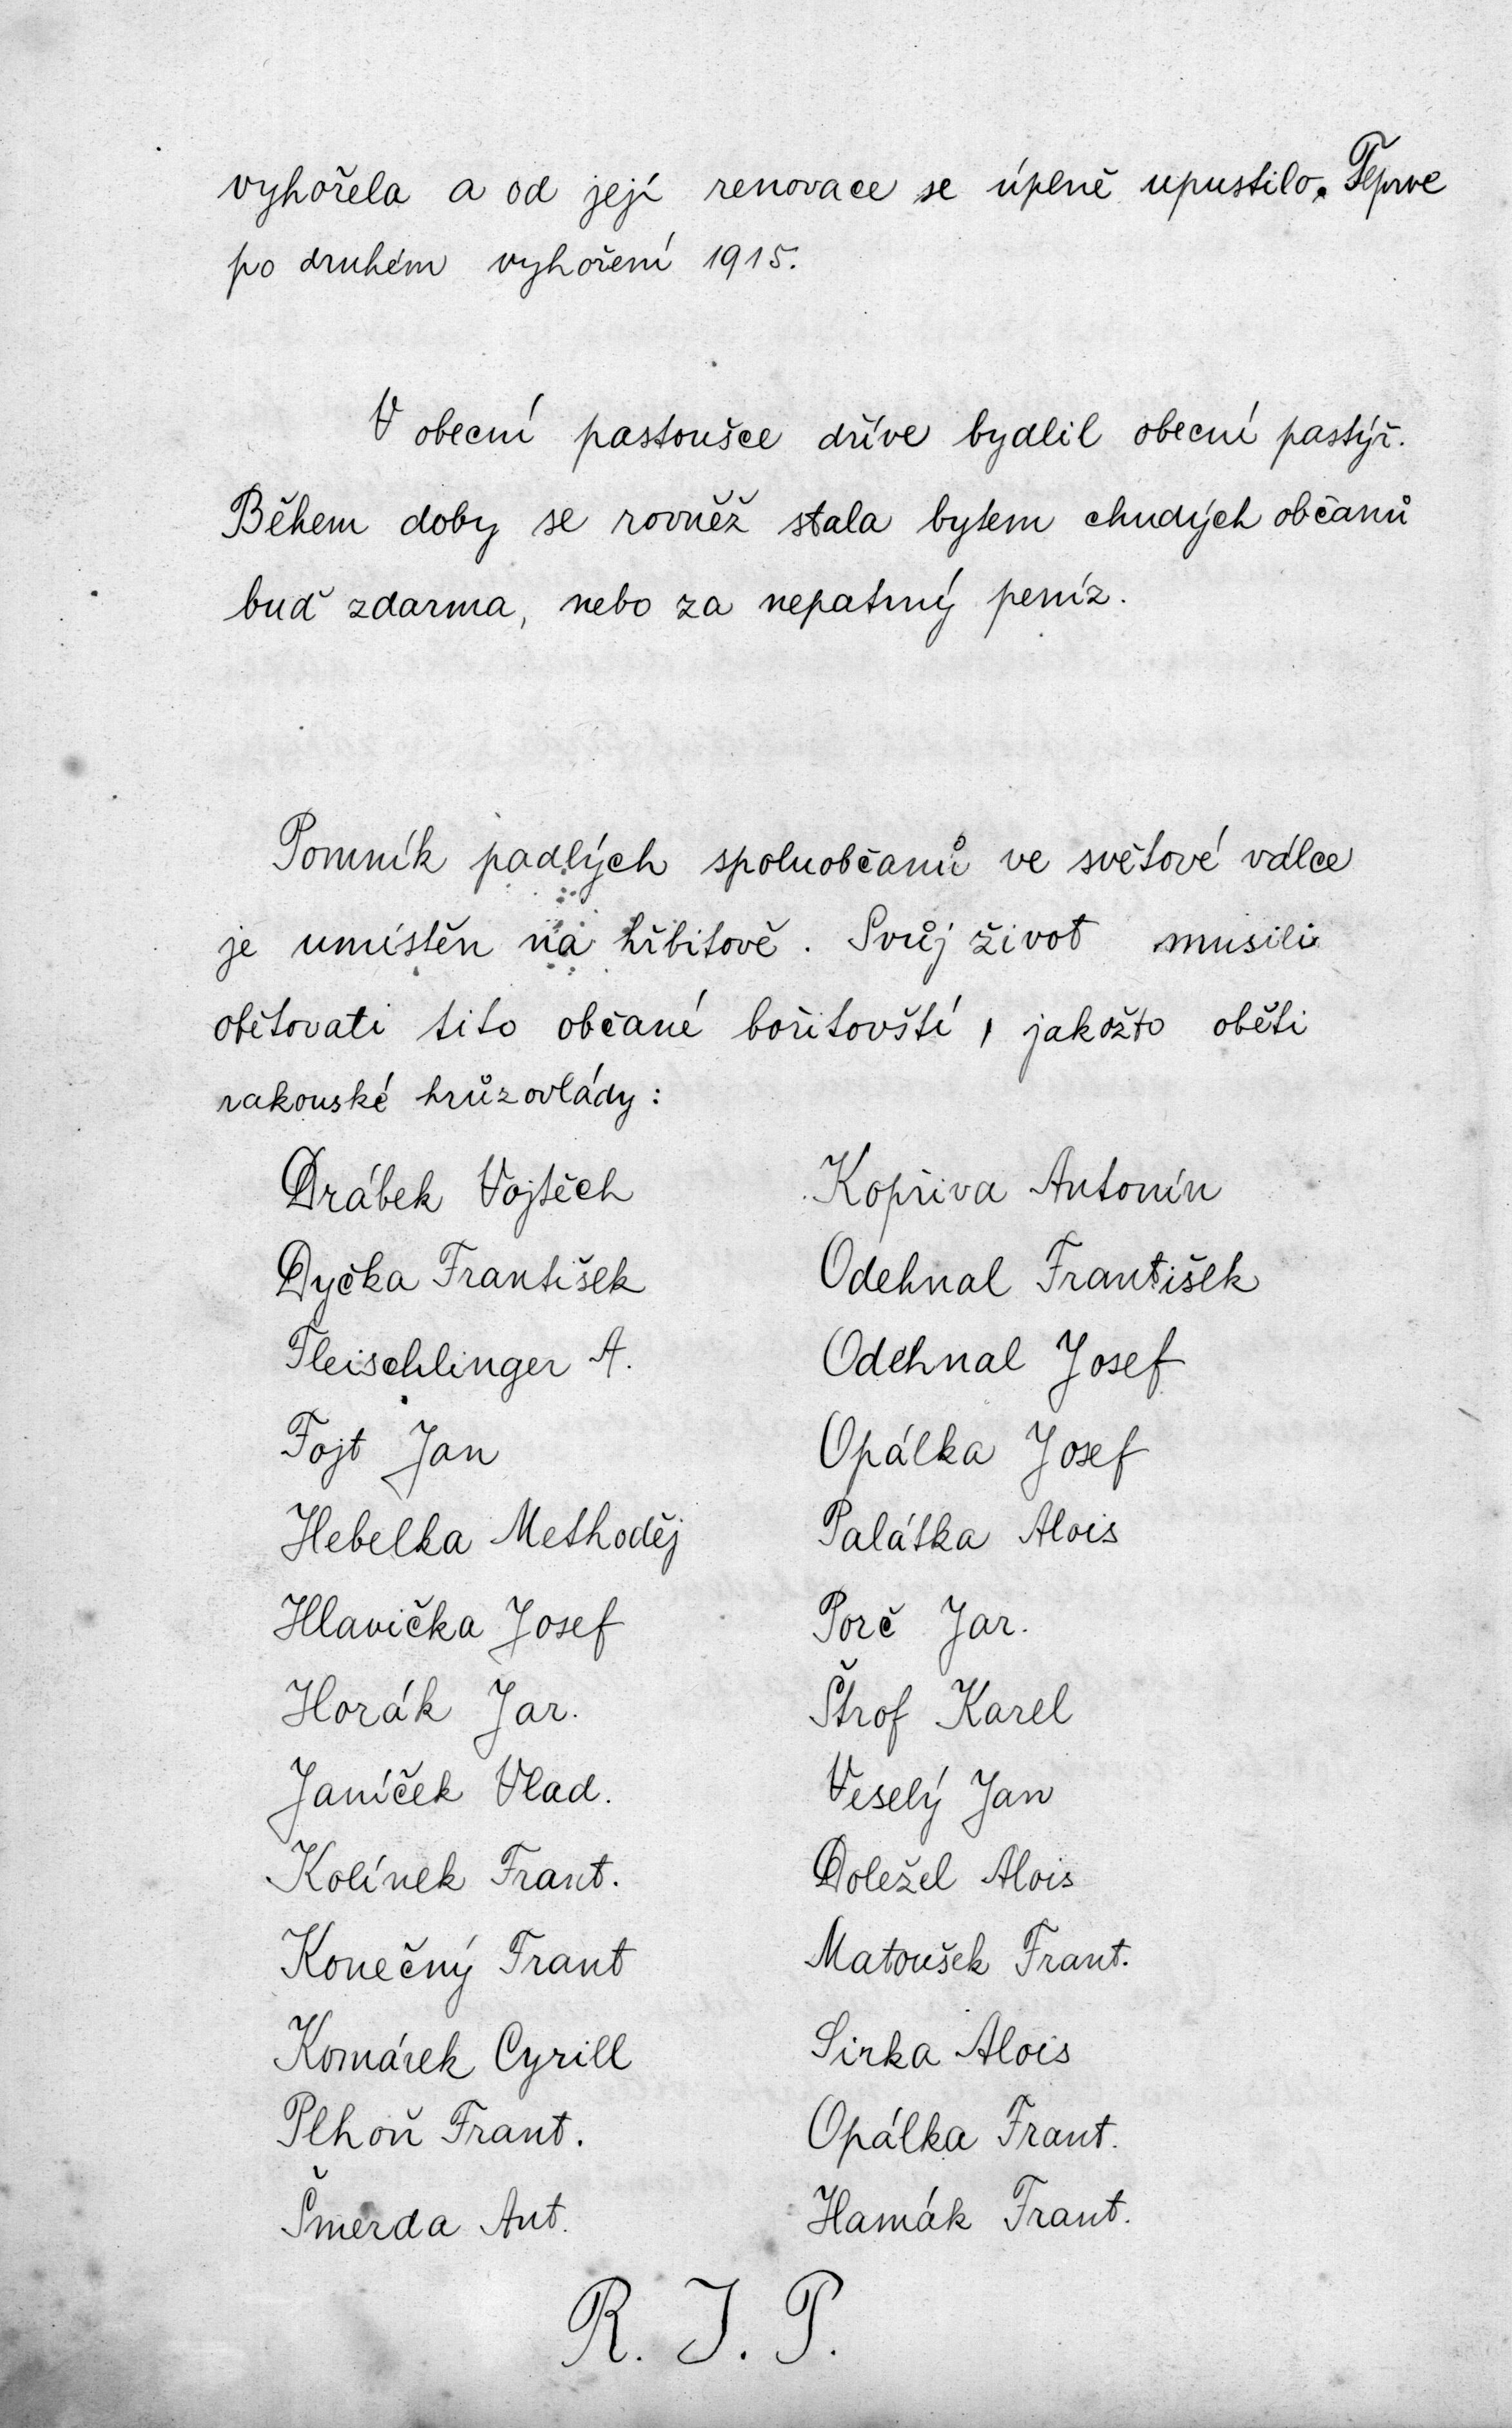 vyhořela a od její renovace se úplně upustilo. Teprve
po druhém vyhoření 1915.
V obecní pastoušce dříve bydlil obecní pastýř.
Během doby se rovněž stala bytem chudých občanů
buď zdarma, nebo za nepatrný peníz.
Pomník padlých spoluobčanů ve světové válce
je umístěn na hřbitově. Svůj život musili
obětovati tito občané bořitovští, jakožto oběti
rakouské hrůzovlády:
Drábek Vojtěch
Dyčka František
Fleischlinger A.
Fojt Jan
Hebelka Methoděj
Hlavička Josef
Horák Jar.
Janíček Vlad.
Kolínek Frant.
Konečný Frant
Komárek Cyrill
Plhoň Frant.
Šmerda Ant.
Kopřiva Antonín
Odehnal František
Odehnal Josef
Opálka Josef
Palátka Alois
Porč Jar.
Štrof Karel
Veselý Jan
Doležel Alois
Matoušek Frant.
Sirka Alois
Opálka Frant.
Hamák Frant.
R. I. P.